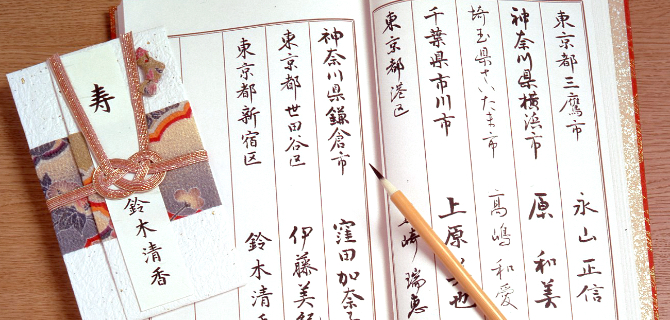 東京都三鷹市 永山正信
神奈川県横浜市 原和美
埼玉県さいたま市 高嶋和愛
千葉県市川市 上原 也
東京都港区 崎瑞恵
神奈川県鎌倉市 窪田加奈子
東京都世田谷区 伊藤美
東京都新宿区 鈴木清香
寿
鈴木清香